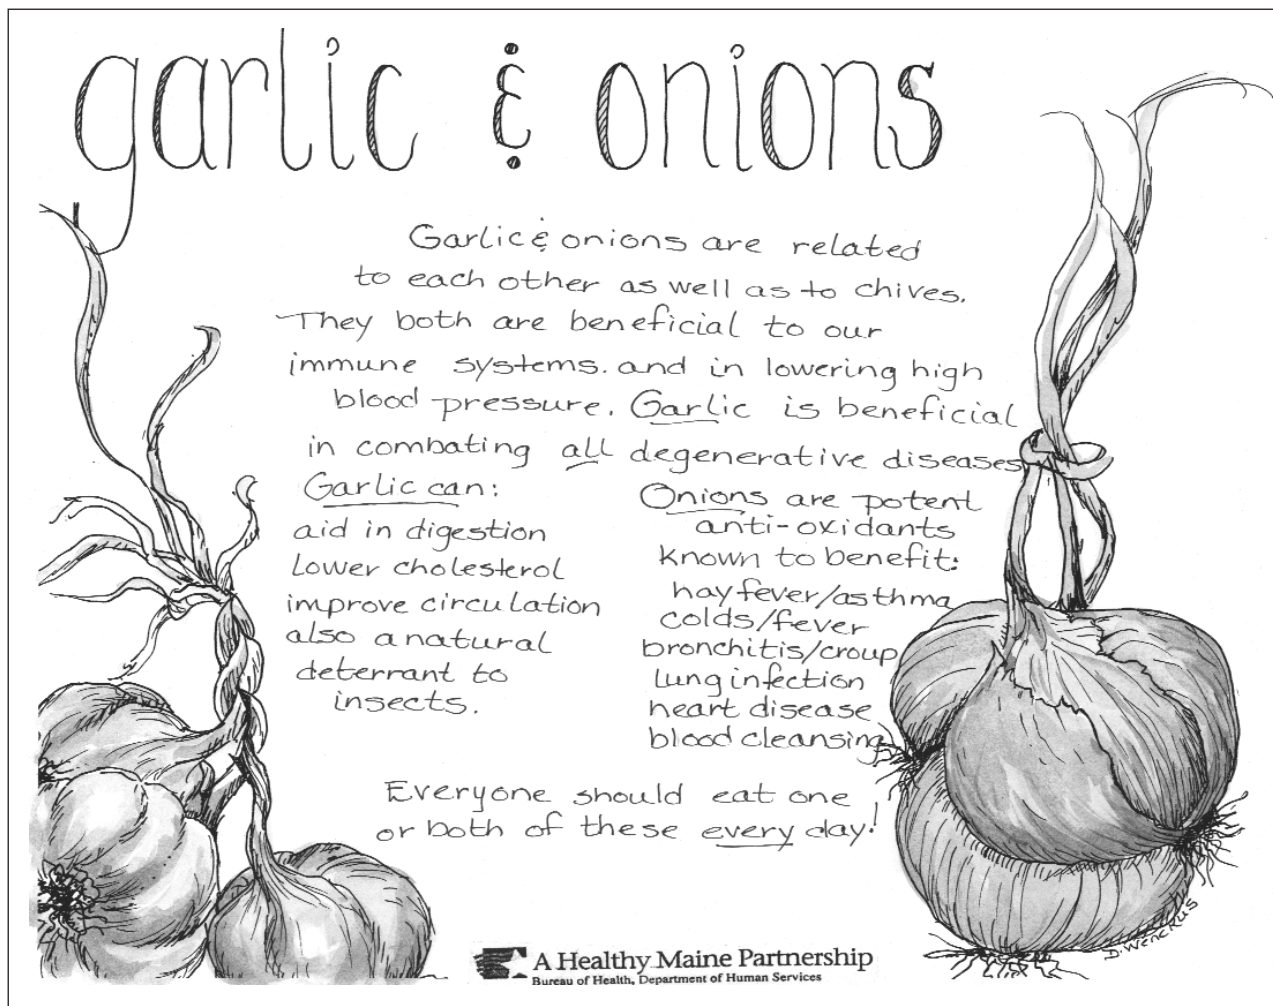 garlic & onions
Garlic & onions are related
to each other as well as to chives.
They both are beneficial to our
immune systems. and in lowering high
blood pressure. Garlic is beneficial
in combating all degenerative diseases
Garlic can:
aid in digestion
lower cholesterol
improve circulation
also a natural
deterrant to
insects.
Onions are potent
anti-oxidants
known to benefit:
hay fever/asthma
colds/fever
bronchitis/croup
lung infection
heart disease
blood cleansing
Everyone should eat one
or both of these every day!
D. Wenckus
A Healthy Maine Partnership
Bureau of Health, Department of Human Services